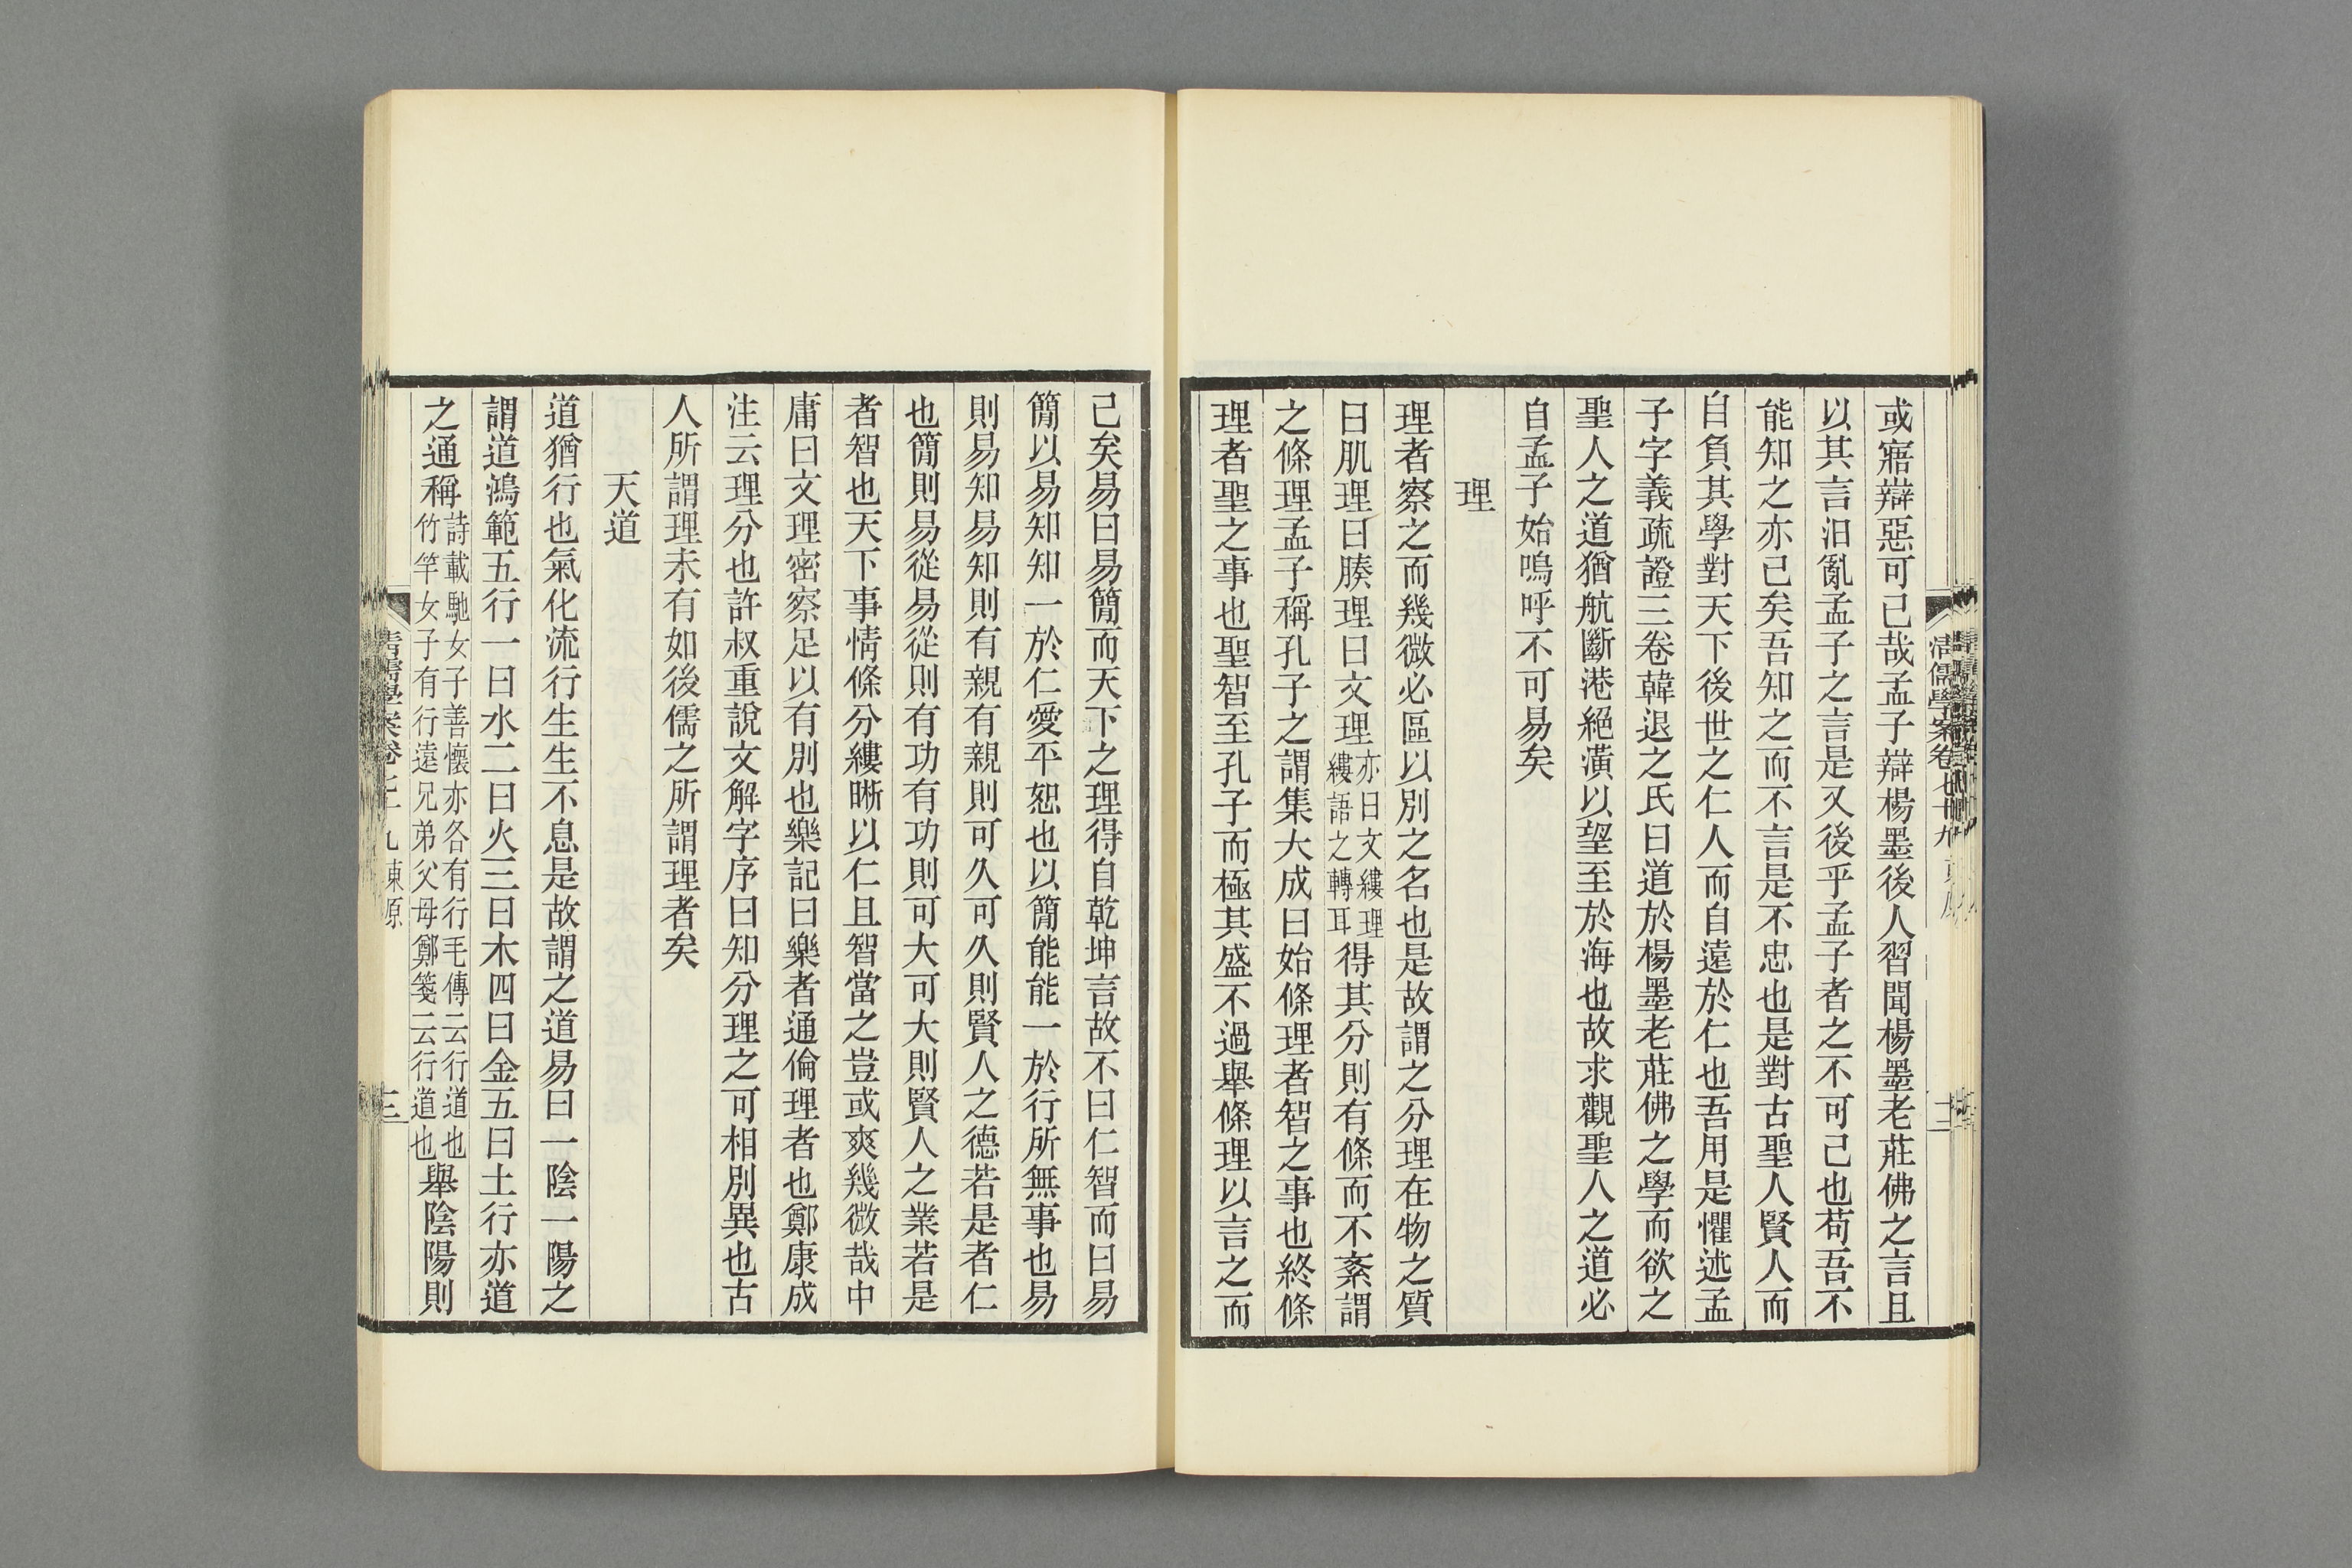 或寤辯惡可已哉孟子辯楊墨後人習聞楊墨老莊佛之言且
以其言汨亂孟子之言是又後乎孟子者之不可已也苟吾不
能知之亦已矣吾知之而不言是不忠也是對古聖人賢人而
自負其學對天下後世之仁人而自遠於仁也吾用是懼述孟
子字義疏證三卷韓退之氏曰道於楊墨老莊佛之學而欲之
聖人之道猶航斷港絕潢以望至於海也故求觀聖人之道必
自孟子始嗚呼不可易矣
理
理者察之而幾微必區以別之名也是故謂之分理在物之質
曰肌理曰腠理曰文理亦曰文縷理縷語之轉耳得其分則有條而不紊謂
之條理孟子稱孔子之謂集大成曰始條理者智之事也終條
理者聖之事也聖智至孔子而極其盛不過舉條理以言之而
清儒學案卷七十九
二
已矣易曰易簡而天下之理得自乾坤言故不曰仁智而曰易
簡以易知知一於仁愛平恕也以簡能能一於行所無事也易
則易知易知則有親有親則可久可久則賢人之德若是者仁
也簡則易從易從則有功有功則可大可大則賢人之業若是
者智也天下事情條分縷晰以仁且智當之豈或爽幾微哉中
庸曰文理密察足以有別也樂記曰樂者通倫理者也鄭康成
注云理分也許叔重說文解字序曰知分理之可相別異也古
人所謂理未有如後儒之所謂理者矣
天道
道猶行也氣化流行生生不息是故謂之道易曰一陰一陽之
謂道鴻範五行一曰水二曰火三曰木四曰金五曰土行亦道
之通稱詩載馳女子善懷亦各有行毛傳云行道也竹竿女子有行遠兄弟父母鄭箋云行道也舉陰陽則
清儒學案卷七十九 東原
三